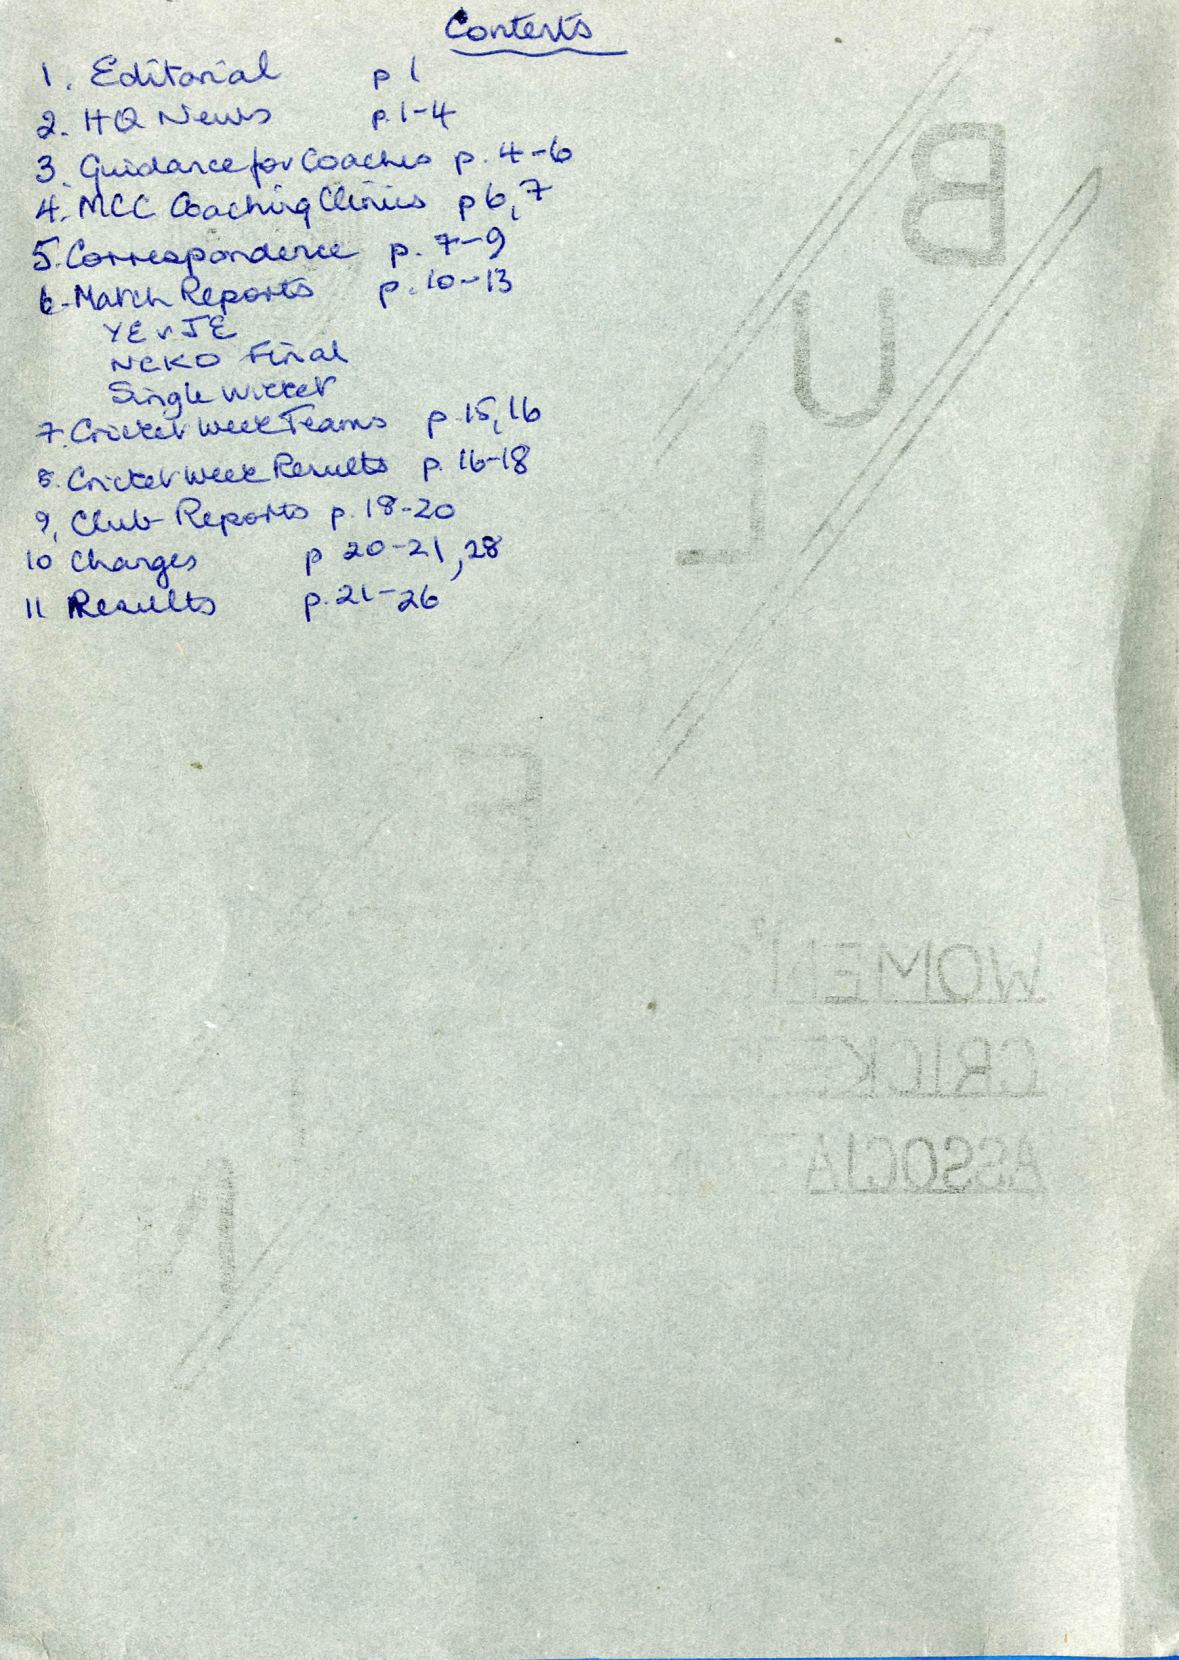 Contents
1. Editorial p 1
2. HQ News p.1-4
3. Guidance for Coaches p. 4-6
4. MCC Coaching Clinics p 6,7
5. Correspondence p. 7-9
6. Match Reports p. 10-13
YE v JE
NCKO Final
Single Wicket
7. Cricket Week Teams p.15,16
8. Cricket Week Results p. 16-18
9, Club Reports p. 18-20
10 Changes p 20-21, 28
11 Results p. 21-26
B
U
L
WOMEN'
CRICKE
ASSOCIA